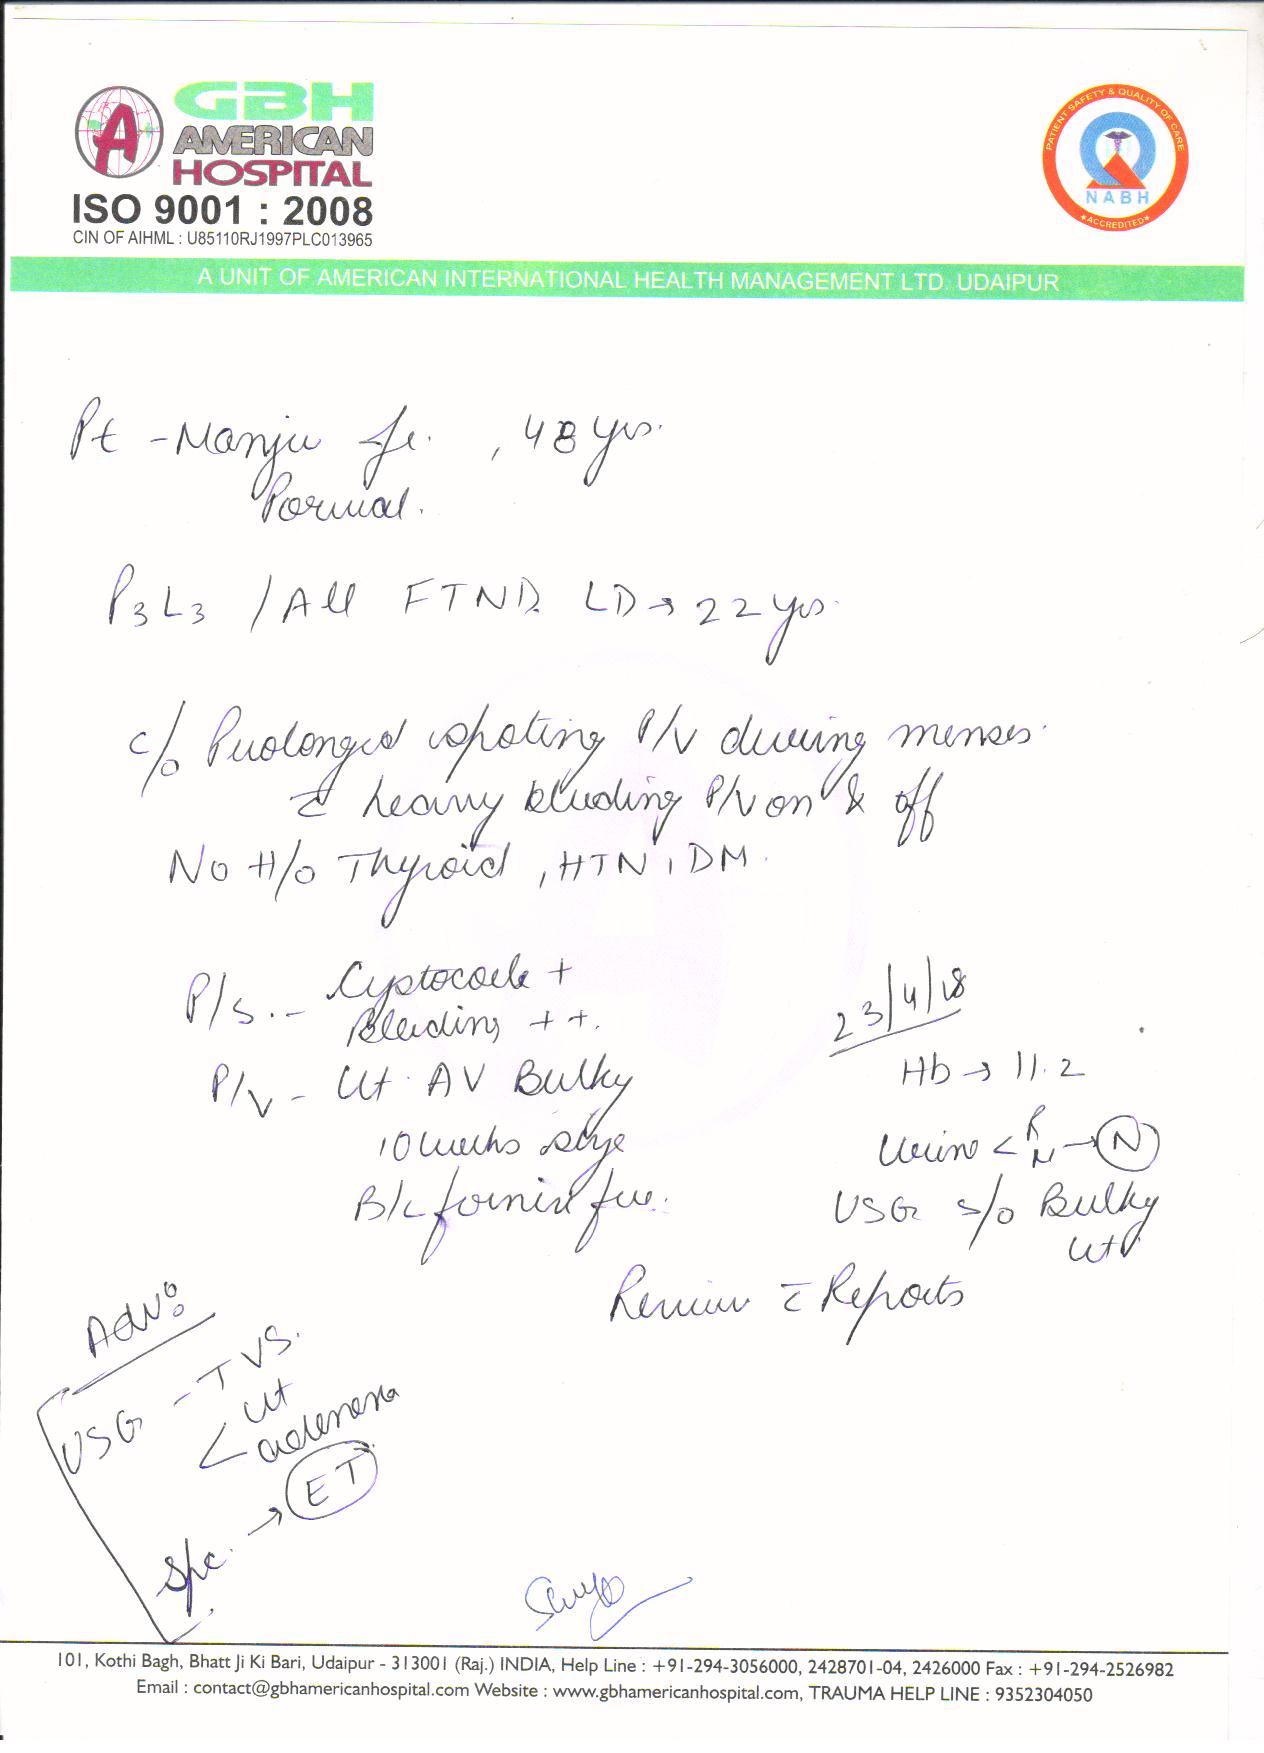 GBH
AMERICAN
HOSPITAL
ISO 9001 : 2008
CIN OF AIHML : U85110RJ1997PLC013965
PATIENT SAFETY & QUALITY OF CARE
NABH
ACCREDITED
A UNIT OF AMERICAN INTERNATIONAL HEALTH MANAGEMENT LTD. UDAIPUR
Pt - Manju , 48 yrs.
Porwal.
P3L3 / All FTND. LD → 22 yrs.
c/o Prolonged spoting P/V during menses.
c̄ heavy bleeding P/V on & off
No H/o Thyroid, HTN, DM.
P/S. - Cystocoele +
Bleeding ++.
P/V - Ut. AV Bulky
10 weeks size
B/L fornix free.
23/4/18
Hb → 11.2
Urine < R M → N
USG s/o Bulky
ut
Review c̄ Reports
Adv:
USG - TVS.
< Ut
adenexa
Spc. → ET
101, Kothi Bagh, Bhatt Ji Ki Bari, Udaipur - 313001 (Raj.) INDIA, Help Line : +91-294-3056000, 2428701-04, 2426000 Fax : +91-294-2526982
Email : contact@gbhamericanhospital.com Website : www.gbhamericanhospital.com, TRAUMA HELP LINE : 9352304050